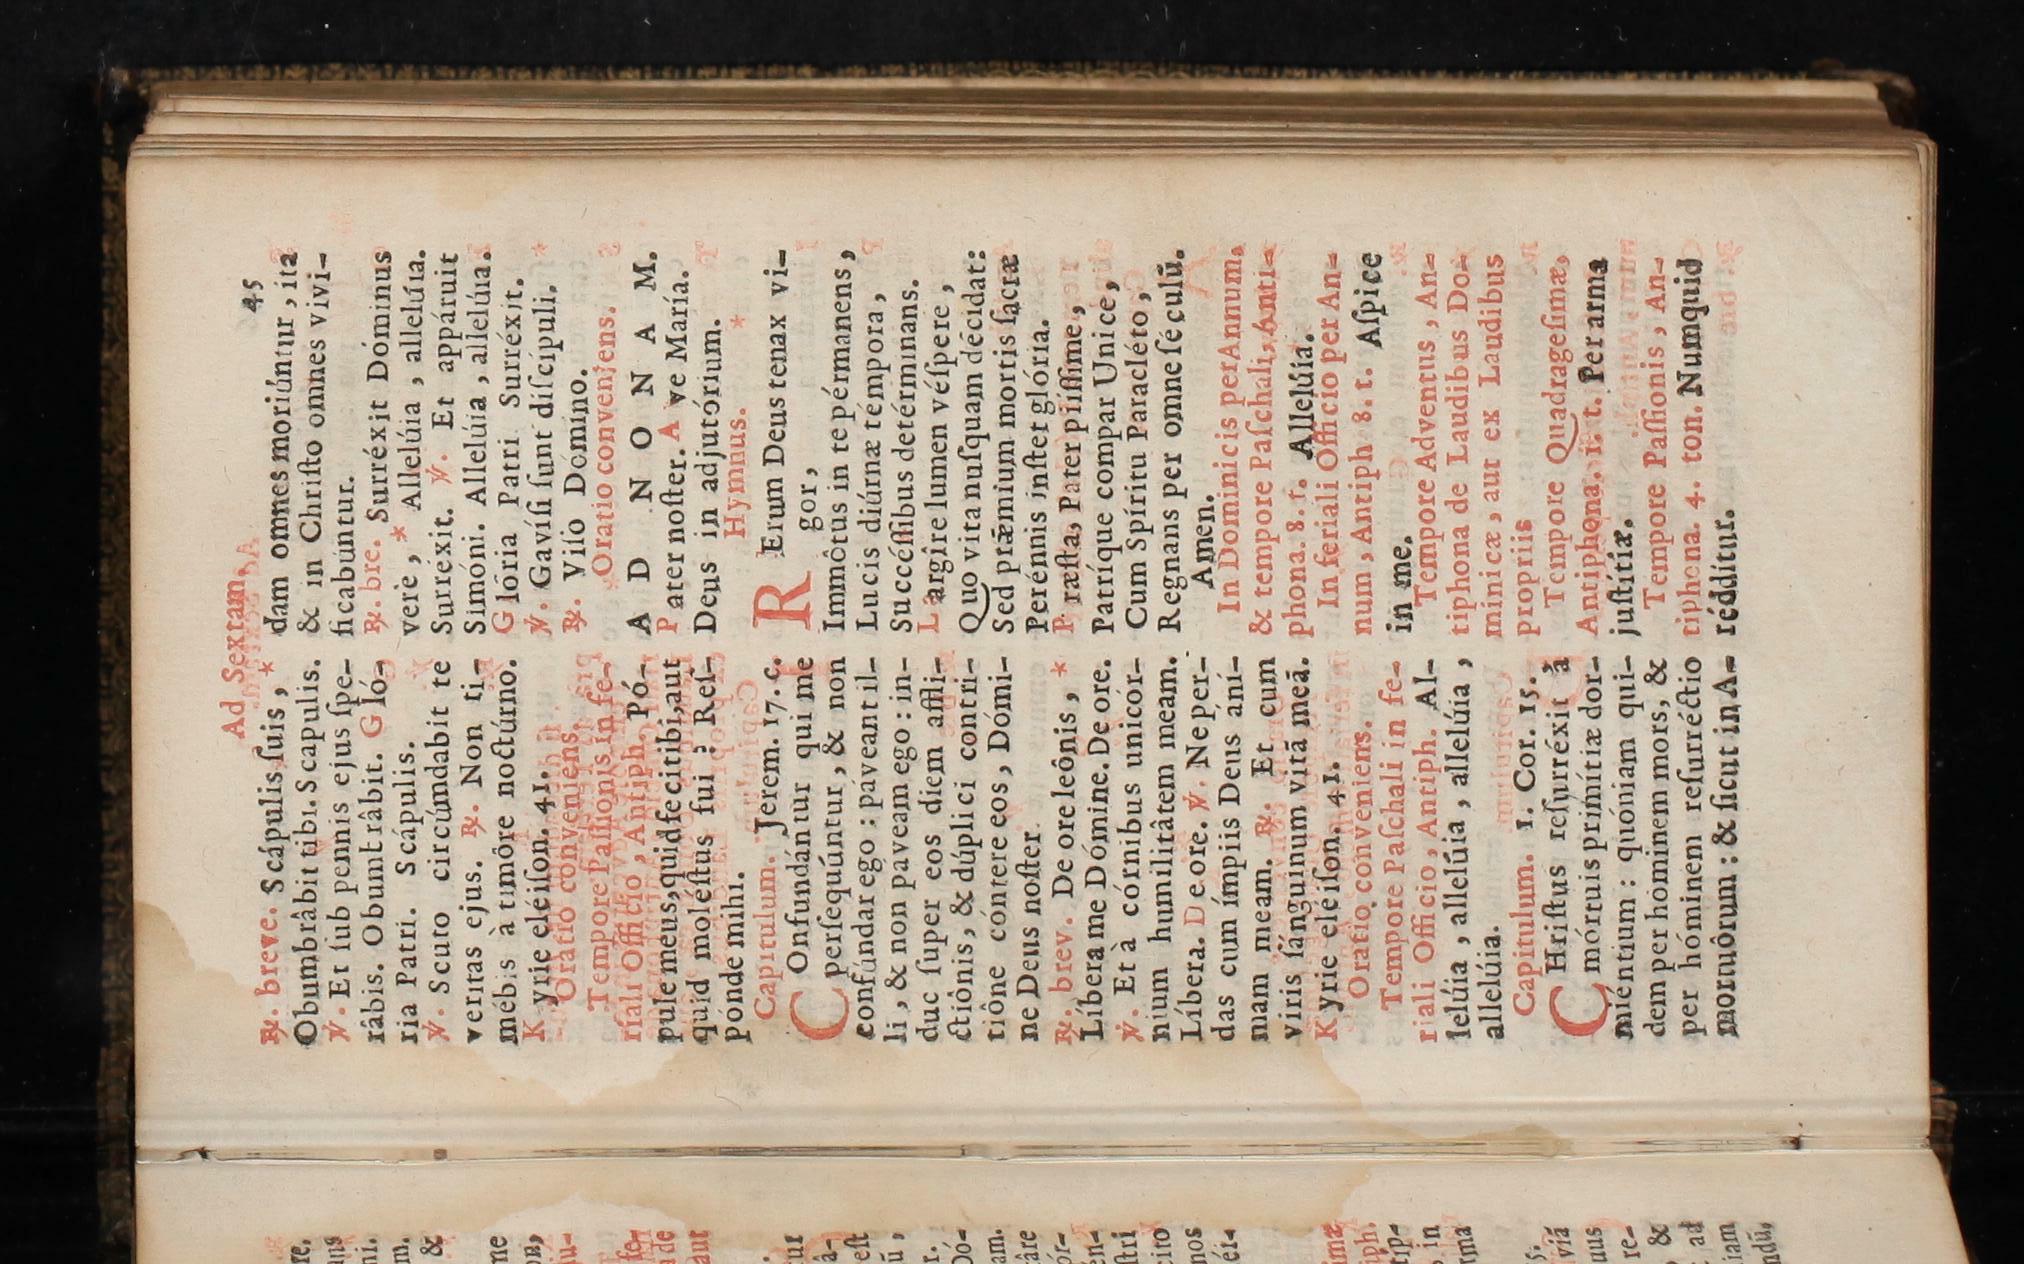 Ad Sextam. 45
℟. breve. Scápulis ſuis, *
Obumbrâbit tibi. Scapulis.
℣. Et ſub pennis ejus ſpe-
râbis. Obumbrâbit. Gló-
ria Patri. Scápulis.
℣. Scuto circúmdabit te
veritas ejus. ℟. Non ti-
mébis à timôre noctúrno.
Kyrie eléiſon. 41.
Oratio conveniens.
Tempore Paſſionis in fe-
riali Officio, Antiph. Pó-
pule meus, quid feci tibi, aut
quid moléſtus fui? Reſ-
pónde mihi.
Capitulum. Jerem. 17. c.
COnfundántur qui me
perſequúntur, & non
confúndar ego: paveant il-
li, & non paveam ego: in-
duc ſuper eos diem affli-
ctiônis, & dúplici contri-
tiône cóntere eos, Dómi-
ne Deus noſter
℟. brev. De ore leônis, *
Líbera me Dómine. De ore.
℣. Et à córnibus unicór-
nium humilitâtem meam.
Líbera. De ore. ℣. Ne per-
das cum ímpiis Deus ani-
mam meam. ℟. Et cum
viris ſánguinum vitā meā.
Kyrie eléiſon. 41.
Oratio conveniens.
Tempore Paſchali in fe-
riali Officio, Antiph. Al-
lelúia, allelúia, allelúia,
allelúia.
Capitulum. 1. Cor. 15.
CHriſtus reſurréxit à
mórtuis primítiæ dor-
miéntium: quóniam qui-
dem per hominem mors, &
per hóminem reſurréctio
mortuôrum: & ſicut in A-
dam omnes moriúntur, ita
& in Chriſto omnes vivi-
ficabúntur.
℟. bre. Surréxit Dóminus
verè, * Allelúia, allelúia.
Surréxit. ℣. Et appáruit
Simóni. Allelúia, allelúia.
Glória Patri Surréxit.
℣. Gavíſi ſunt diſcípuli.
℟. Viſo Dómino.
Oratio conveniens.
AD NONAM.
Pater noſter. Ave María.
Deus in adjutórium.
Hymnus.
RErum Deus tenax vi-
gor,
Immôtus in te pérmanens,
Lucis diúrnæ témpora,
Succéſſibus detérminans.
Largîre lumen véſpere,
Quo vita nuſquam décidat:
Sed prǣmium mortis ſacræ
Perénnis inſtet glória.
Præſta, Pater piíſſime,
Patríque compar Unice,
Cum Spíritu Paracléto,
Regnans per omne ſéculū.
Amen.
In Dominicis per Annum,
& tempore Paſchali, Anti-
phona. 8. t. Allelúia.
In feriali Officio per An-
num, Antiph 8. t. Aſpice
in me.
Tempore Adventus, An-
tiphona de Laudibus Do-
minicæ, aut ex Laudibus
propriis
Tempore Quadrageſimæ,
Antiphona. 1. t. Per arma
juſtítiæ.
Tempore Paſſionis, An-
tiphona. 4. ton. Numquid
rédditur.